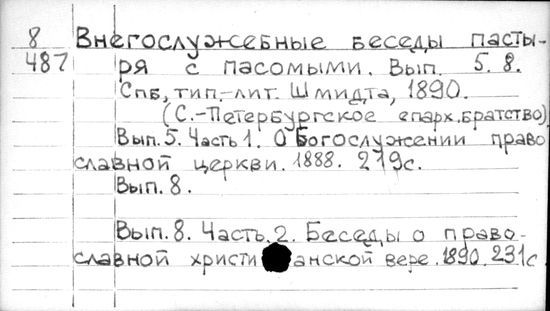 8 Внегослужебные беседы пасты-
487 ря с пасомыми. Вып. 5. 8.
Спб, тип.-лит. Шмидта, 1890.
(С.-Петербургское епарх. братство)
Вып. 5. Часть 1. О Богослужении право
славной церкви. 1888. 219с.
Вып. 8.
Вып. 8. Часть. 2. Беседы о право-
славной христианской вере. 1890. 231с